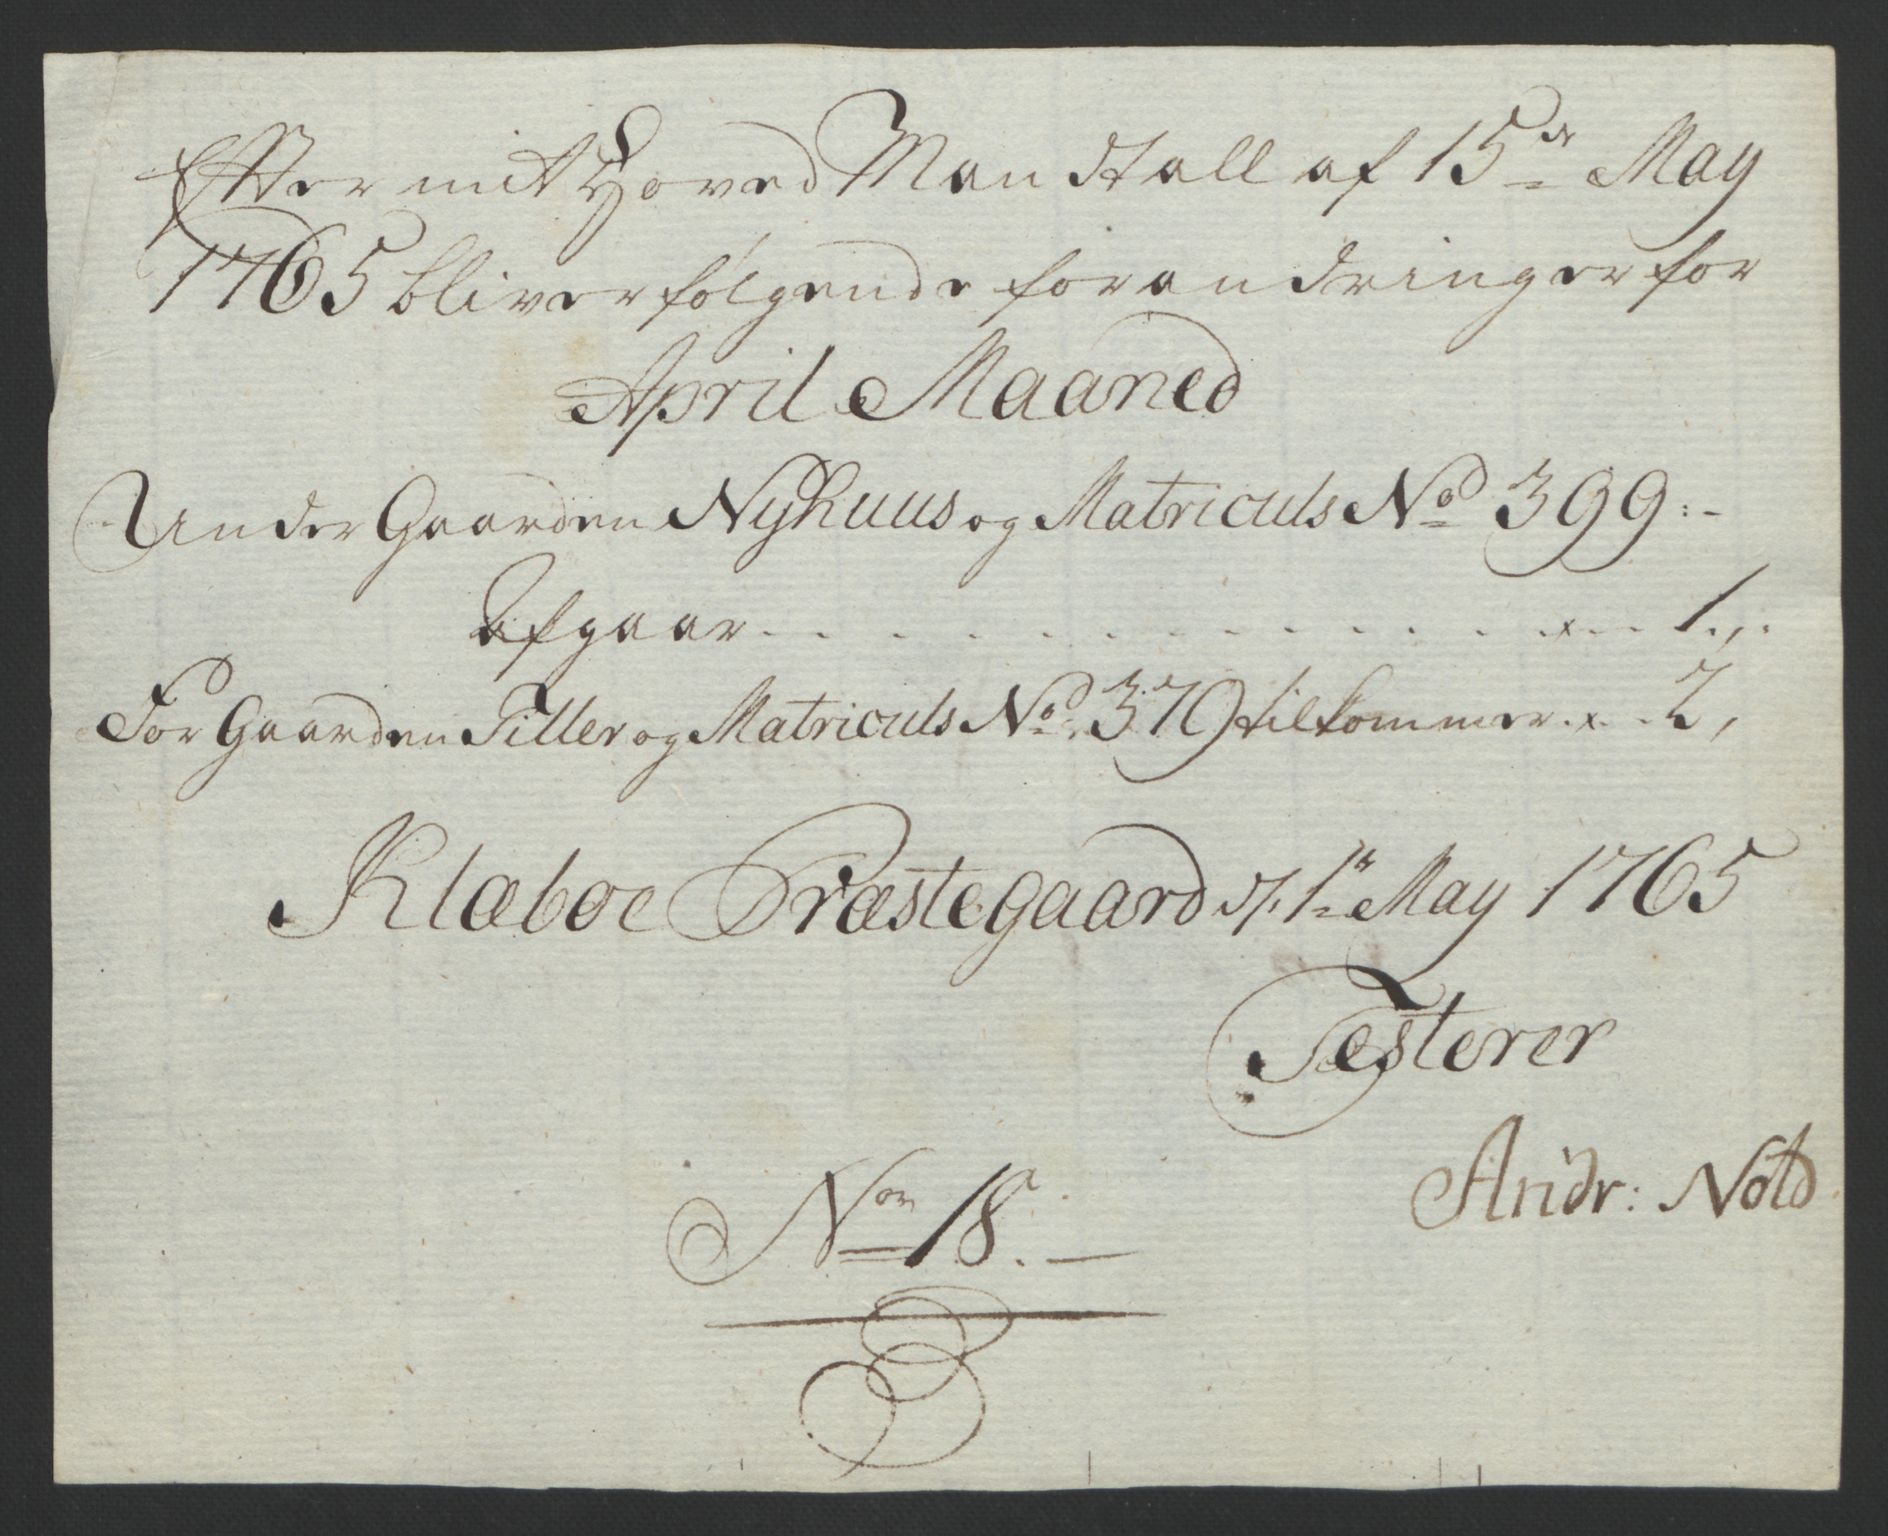 Efter mit Hoved Mandtall af 15de May
1765 bliver følgende forandringer for
April Maaned
Under Gaarden Nyhuus og Matriculs No 399:-
afgaar . . . . . . . . . . . . . . . x - 1.,.
For Gaarden Tiller og Matriculs No 379 tilkommer . x. . 2,
Klæboe Præstegaard d. 1te May 1765
Testerer
Andr: Noto
Nor 18. -